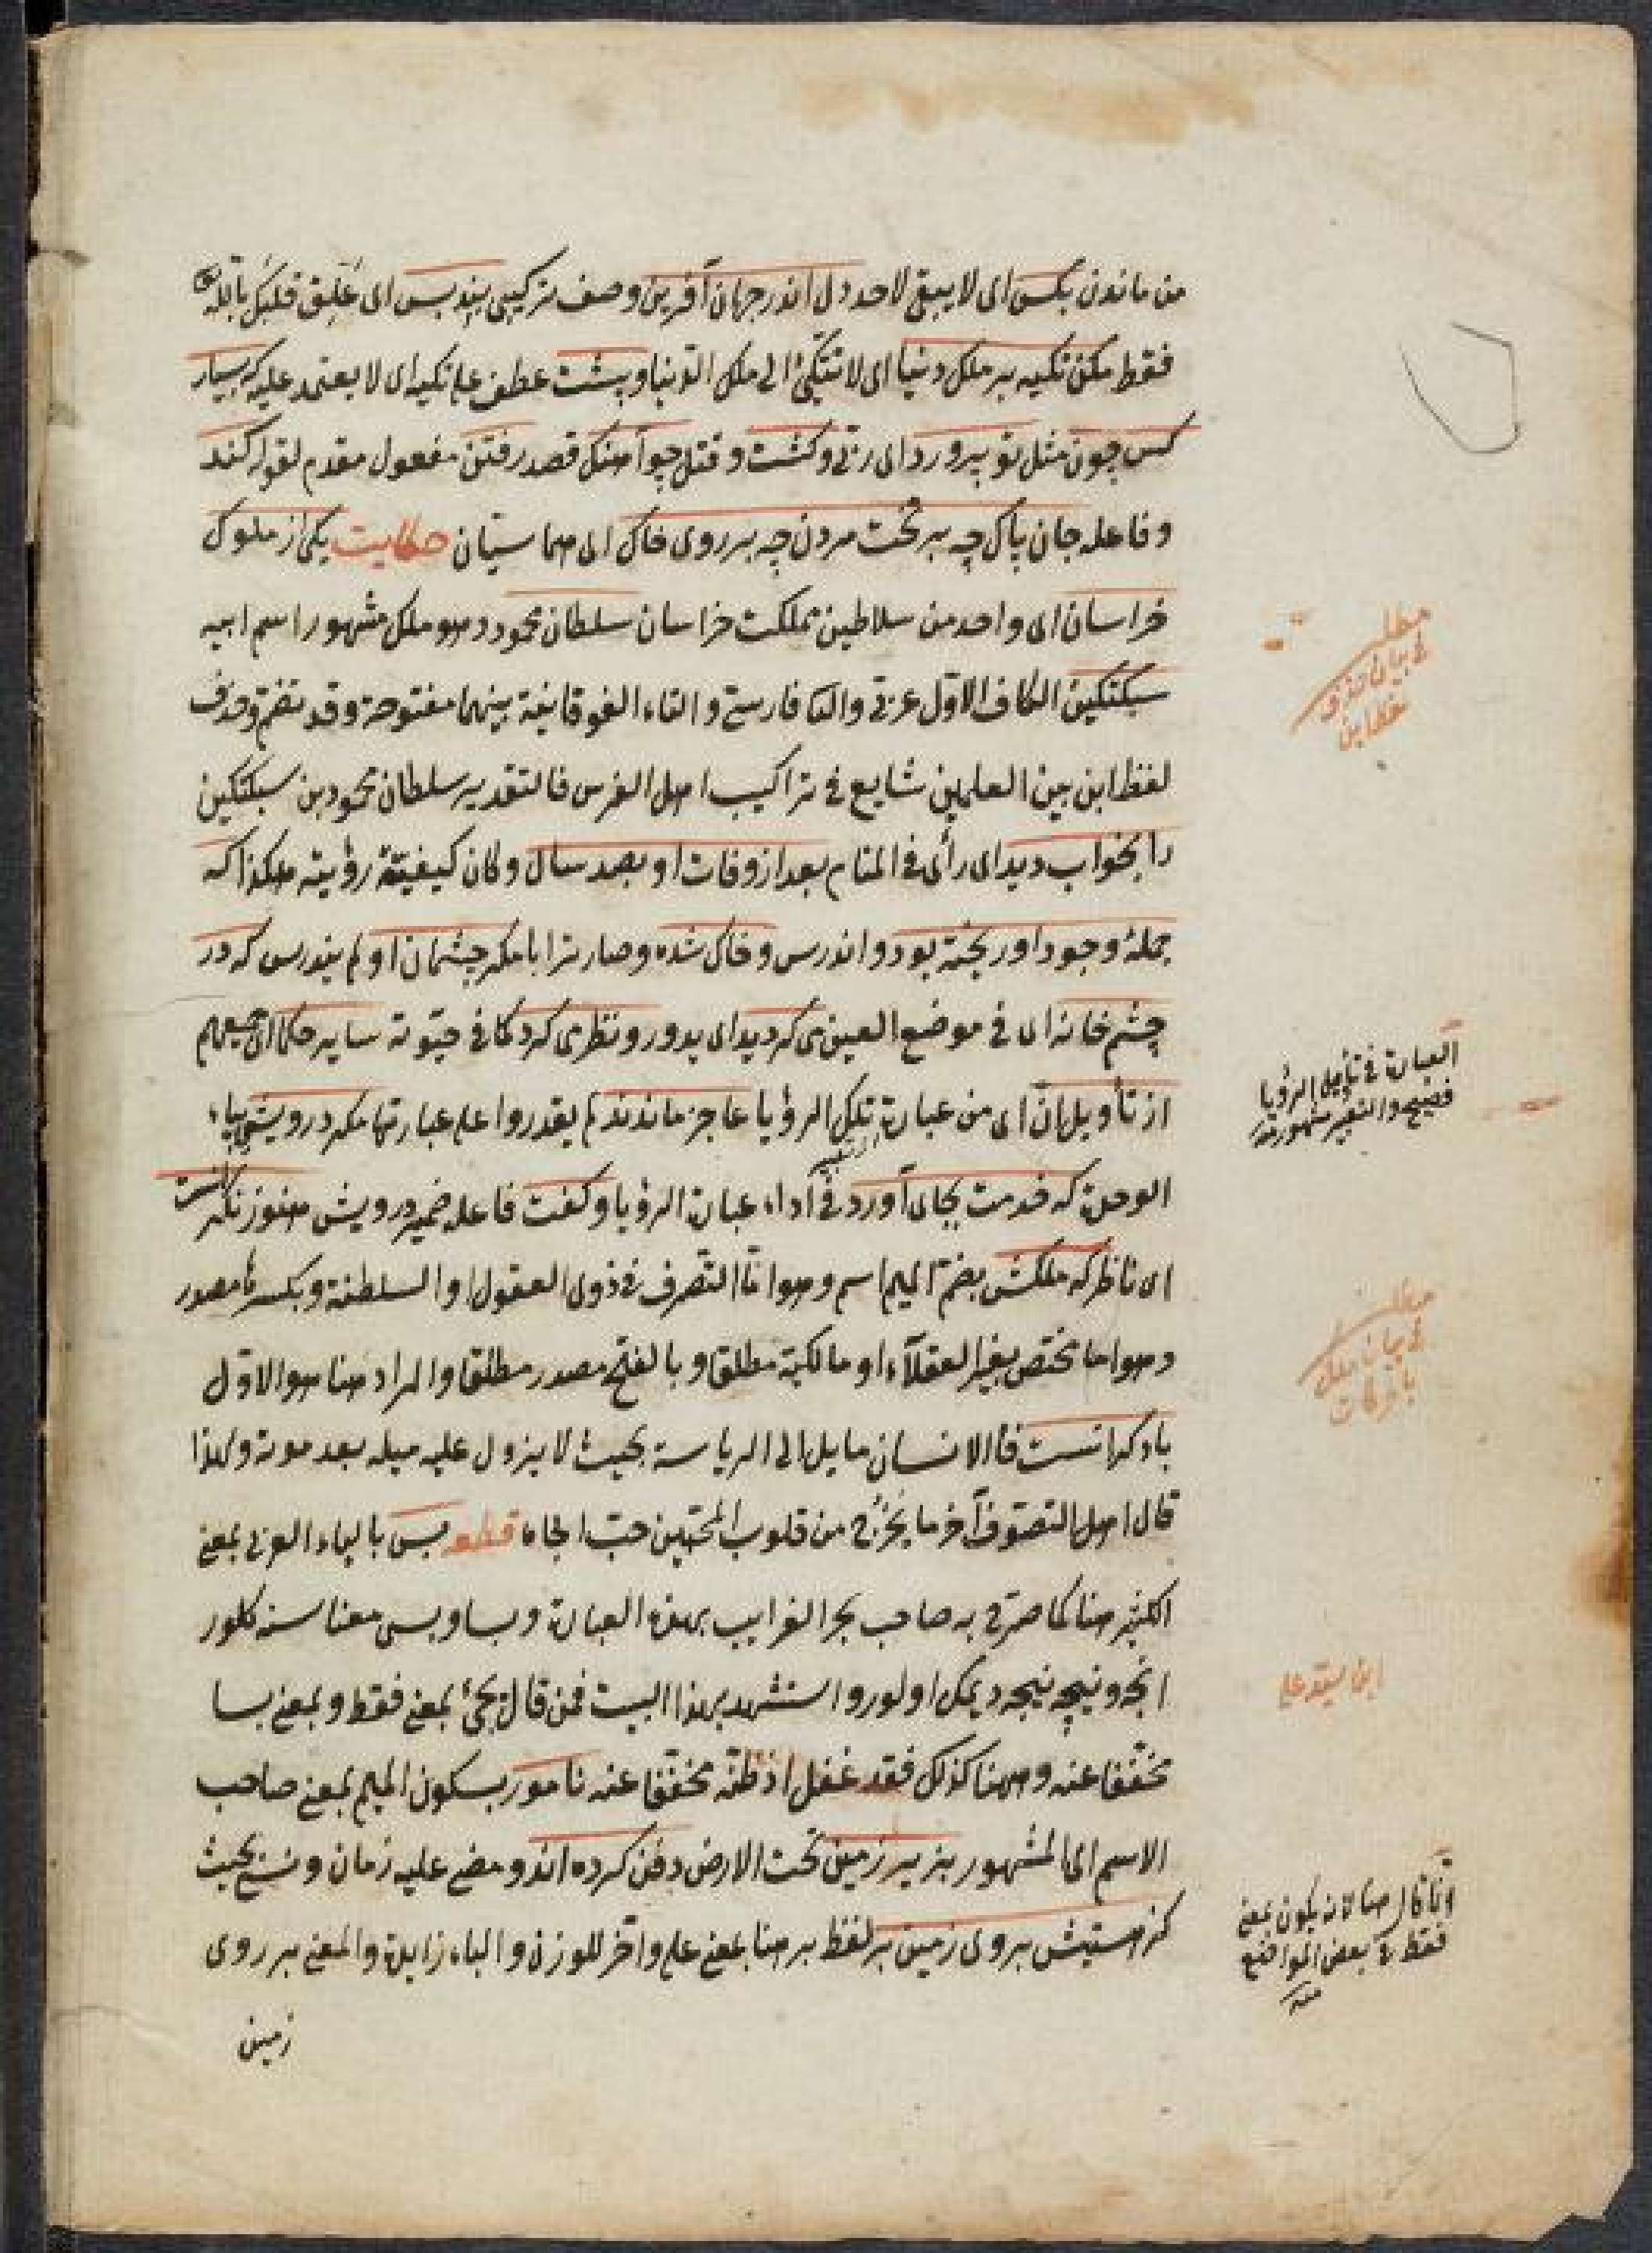 من ماندن بكس اى لا يبقى لاحد دل اندر جهان آفرين وصف تركيبى بند بس اى علّق قلبك بالله
فقط مكن تكيه بر ملك دنيا اى لا تتكئ الى ملك الدنيا و پشت عطف على تكيه اى لا يعتمد عليه كه بسيار
كس چون مثل تو پرورد اى ربّى و كشت و قتل چو آهنك قصد رفتن مفعول مقدم لقوله كند
و فاعله جان پاك چه بر تخت مردن چه بر روى خاك اى هما سيّان حكايت يكى از ملوك
خراسان اى واحد من سلاطين مملكت خراسان سلطان محمود و هو ملك مشهور اسم ابيه
سبكتكين الكاف الاوّل عربىّ والثا فارسىّ والتاء الفوقانية بينهما مفتوحة وقد تضم وحذف
لفظ ابن بين العلمين شايع فى تراكيب اهل الفرس فالتقدير سلطان محمود بن سبكتكين
را بخواب ديد اى رأى فى المنام بعد از وفات او بصد سال وكان كيفيّة رؤيته هكذا كه
جملۀ وجود او ريخته بود و اندرس و خاك شده وصار ترابا مكر چشمان او لم يندرس كه در
چشم خانه اى فى موضع العين مى كرديد اى يدور و نظر مى كرد كما فى حيوته ساير حكما اى جميعهم
از تأويل آن اى من عبارة تلك الرؤيا عاجز ماندند لم يقدروا على عبارتها مكر درويشى بياء
الوحدة كه خدمت بجاى آورد فى اداء عبارة الرؤيا و كفت فاعله ضمير درويش هنوز نكرانست
اى ناظر كه ملكش بضم الميم اسم وهو امّا التصرف فى ذوى العقول او السلطنة وبكسرها مصدر
وهو اما تختص بغير العقلآء او مالكية مطلقا وبالفتح مصدر مطلقا والمراد هنا هو الاوّل
با دكرانست فان الانسان مايل الى الرياسة بحيث لا يزول عليه ميله بعد موته ولهذا
قال اهل التصوّف آخر ما يخرج من قلوب المحبّين حبّ الجاه قطعه بس بالباء العربى بمعنى
الكثير هنا كما صرّح به صاحب بحر الغرايب بهذه العبارة و بسا و بسى معناسنه كلور
انجه و نيچه نيجه ديمك اولور و استشهد بهذا البيت فمن قال يجئ بمعنى فقط وبمعنى بسا
مخفّفا عنه وههنا كذلك فقد غفل اذ ظنّه مخفّفا عنه نامور بسكون الميم بمعنى صاحب
الاسم اى المشهور بزير زمين تحت الارض دفن كرده اند ومضى عليه زمان ونسى بحيث
كز هستيش بروى زمين بر لفظ بر هنا بمعنى على واخّر للوزن والباء زايدة والمعنى بر روى
زمين
مطلب
فى بيان حذف
لفظ ابن
العبارة فى تأويل الرؤيا
فصيح والتعبير مشهور منه
مطلب
فى بيان ملك
بالحركات
ابن سيّد على
انّما قال هنا لانه يكون بمعنى
فقط فى بعض المواضع
منه